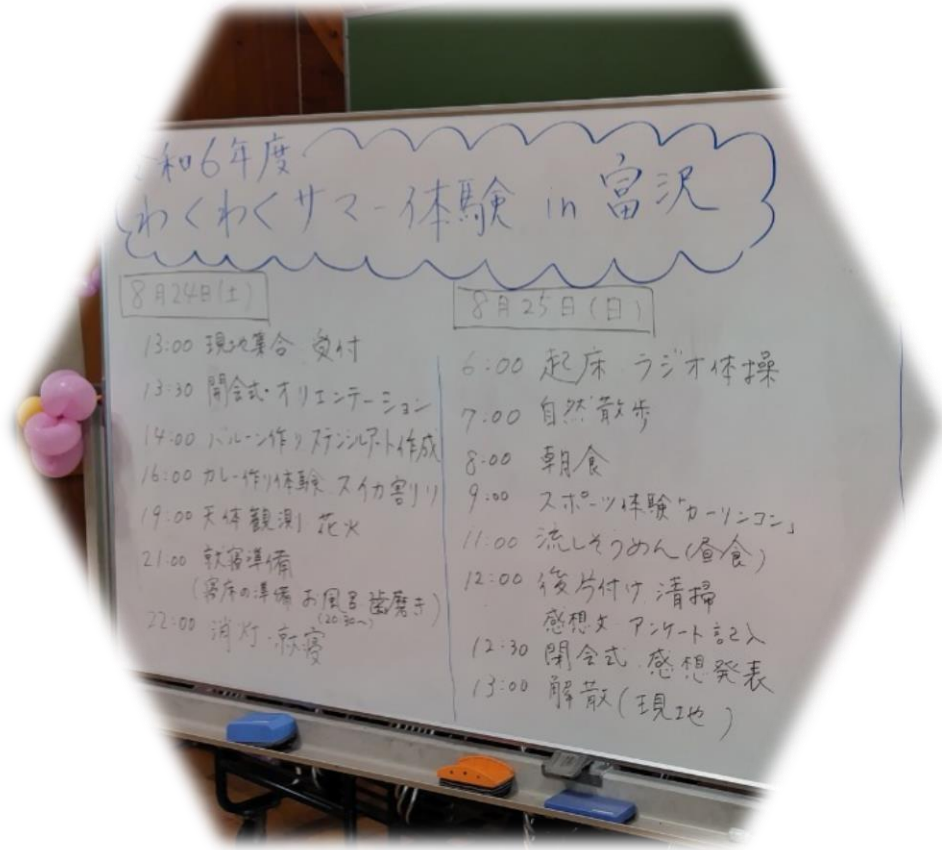 令和6年度
わくわくサマー体験 in 富沢
8月24日(土)
13:00 現地集合 受付
13:30 開会式・オリエンテーション
14:00 バルーン作り ステンシルアート作成
16:00 カレー作り体験 スイカ割り
19:00 天体観測 花火
21:00 就寝準備
(寝床の準備 お風呂 歯磨き)
(20:30〜)
22:00 消灯・就寝
8月25日(日)
6:00 起床 ラジオ体操
7:00 自然散歩
8:00 朝食
9:00 スポーツ体験「カーリンコン」
11:00 流しそうめん(昼食)
12:00 後片付け 清掃
感想文 アンケート記入
12:30 閉会式 感想発表
13:00 解散(現地)